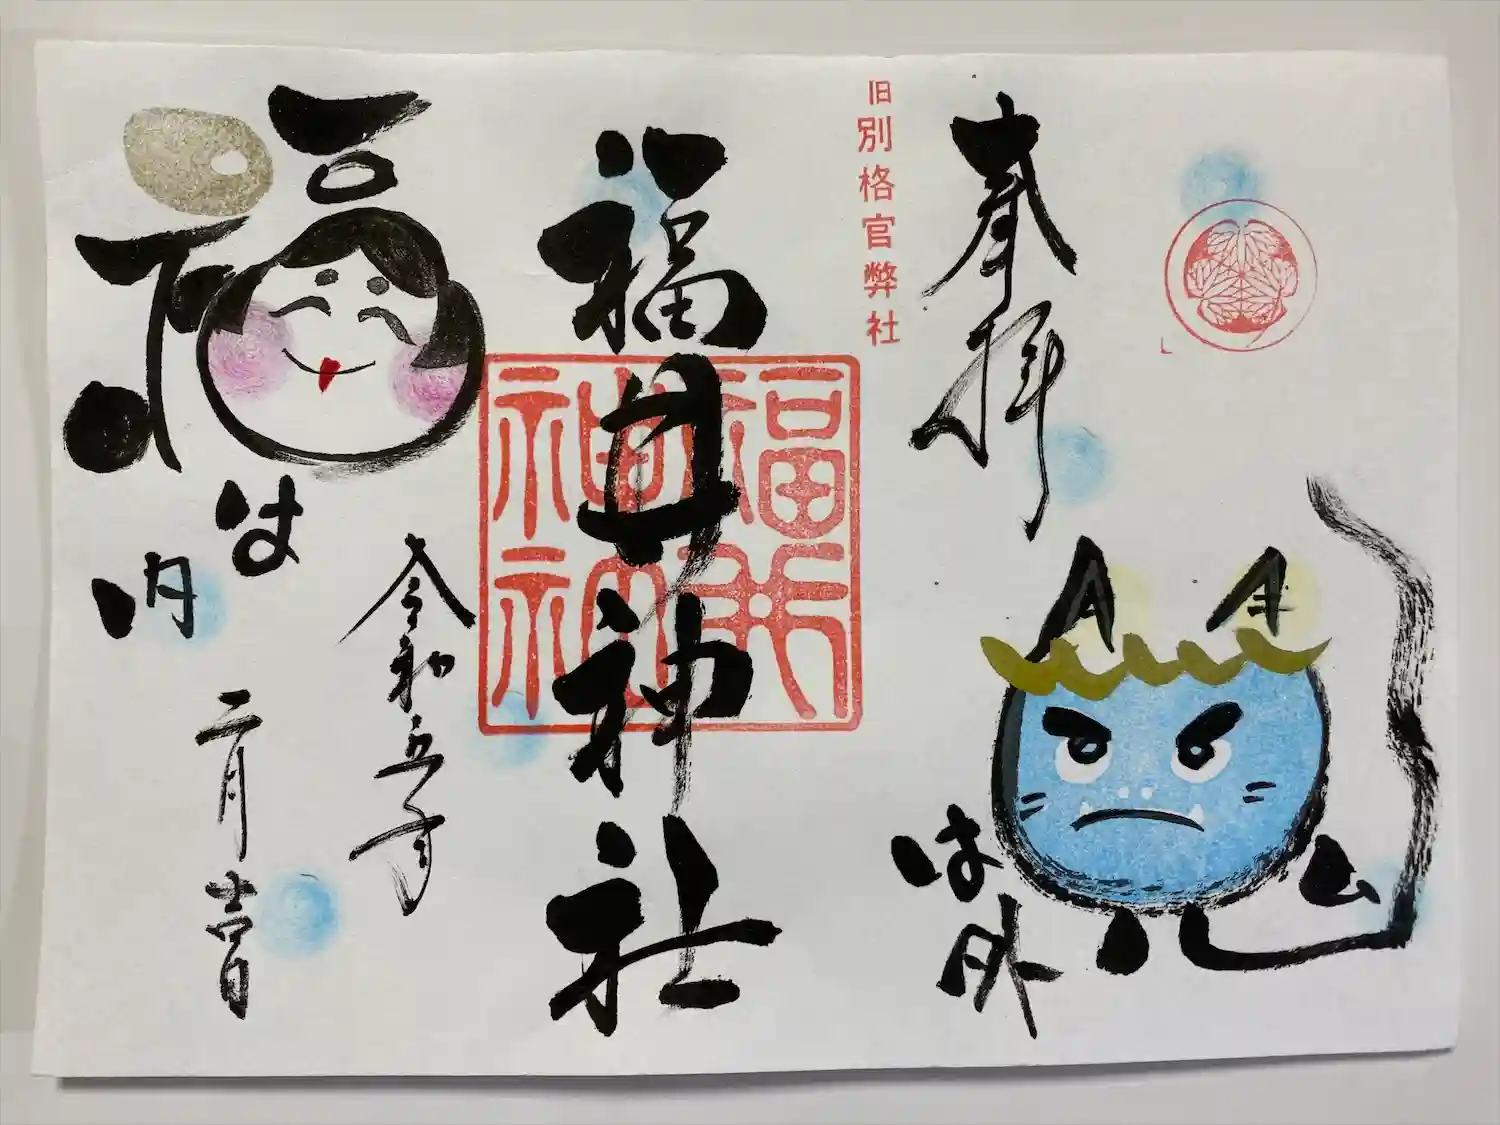 奉拝
鬼は外
旧別格官弊社
福井神社
福井
神社
令和五年
二月吉日
福は内